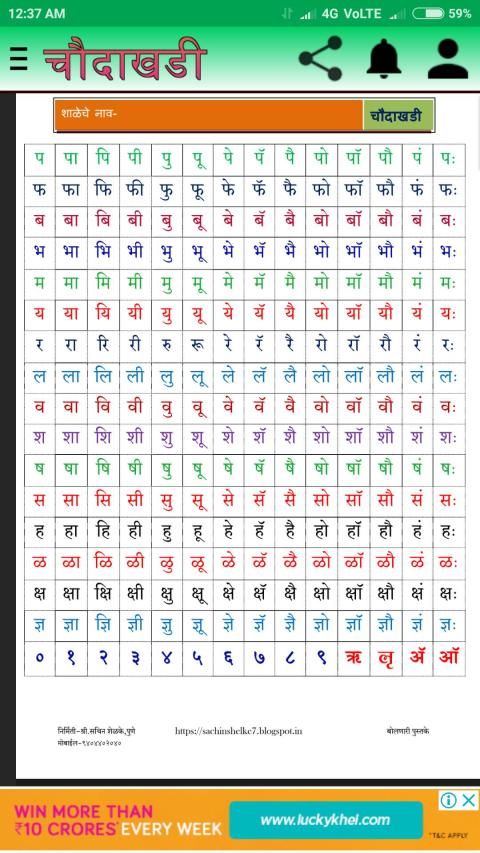 12:37 AM 4G VoLTE 59%
चौदाखडी
शाळेचे नाव- चौदाखडी
प पा पि पी पु पू पे पॅ पै पो पॉ पौ पं पः
फ फा फि फी फु फू फे फॅ फै फो फॉ फौ फं फः
ब बा बि बी बु बू बे बॅ बै बो बॉ बौ बं बः
भ भा भि भी भु भू भे भॅ भै भो भॉ भौ भं भः
म मा मि मी मु मू मे मॅ मै मो मॉ मौ मं मः
य या यि यी यु यू ये यॅ यै यो यॉ यौ यं यः
र रा रि री रु रू रे रॅ रै रो रॉ रौ रं रः
ल ला लि ली लु लू ले लॅ लै लो लॉ लौ लं लः
व वा वि वी वु वू वे वॅ वै वो वॉ वौ वं वः
श शा शि शी शु शू शे शॅ शै शो शॉ शौ शं शः
ष षा षि षी षु षू षे षॅ षै षो षॉ षौ षं षः
स सा सि सी सु सू से सॅ सै सो सॉ सौ सं सः
ह हा हि ही हु हू हे हॅ है हो हॉ हौ हं हः
ळ ळा ळि ळी ळु ळू ळे ळॅ ळै ळो ळॉ ळौ ळं ळः
क्ष क्षा क्षि क्षी क्षु क्षू क्षे क्षॅ क्षै क्षो क्षॉ क्षौ क्षं क्षः
ज्ञ ज्ञा ज्ञि ज्ञी ज्ञु ज्ञू ज्ञे ज्ञॅ ज्ञै ज्ञो ज्ञॉ ज्ञौ ज्ञं ज्ञः
० १ २ ३ ४ ५ ६ ७ ८ ९ ऋ लृ ॲ ऑ
निर्मिती-श्री.सचिन शेळके,पुणे https://sachinshelke7.blogspot.in बोलणारी पुस्तके
मोबाईल-९४०४४०२०४०
WIN MORE THAN
₹10 CRORES* EVERY WEEK
www.luckykhel.com
*T&C APPLY